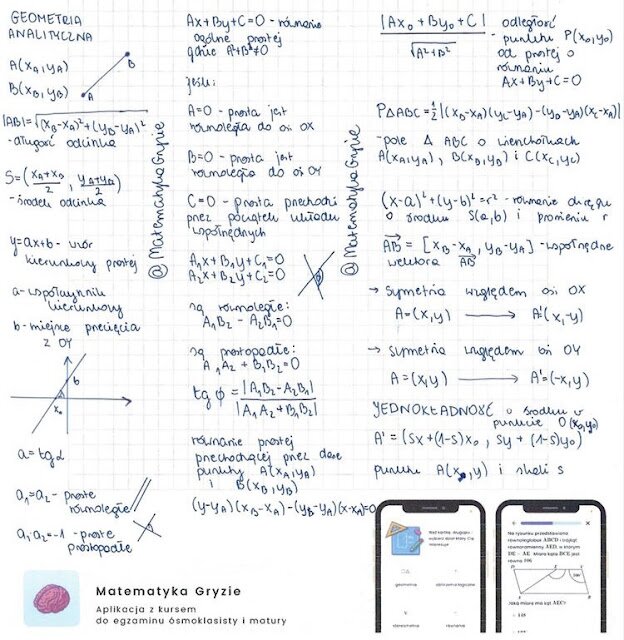 GEOMETRIA
ANALITYCZNA
A(xA,yA)
B(xB,yB)
A
B
|AB|=√(xB-xA)²+(yB-yA)²
-długość odcinka
S=(xA+xB/2, yA+yB/2)
-środek odcinka
y=ax+b - wzór
kierunkowy prostej
a-współczynnik
kierunkowy
b-miejsce przecięcia
z OY
b
x₀
a=tgα
a₁=a₂ - proste
równoległe
a₁·a₂=-1 - proste
prostopadłe
@MatematykaGryzie
Ax+By+C=0 - równanie
ogólne prostej
gdzie A²+B²≠0
jeśli:
A=0 - prosta jest
równoległa do osi OX
B=0 - prosta jest
równoległa do osi OY
C=0 - prosta przechodzi
przez początek układu
współrzędnych
A₁x+B₁y+C₁=0
A₂x+B₂y+C₂=0
są równoległe:
A₁B₂-A₂B₁=0
są prostopadłe:
A₁A₂+B₁B₂=0
tgϕ=|A₁B₂-A₂B₁|/|A₁A₂+B₁B₂|
równanie prostej
przechodzącej przez dane
punkty A(xA,yA)
i B(xB,yB)
(y-yA)(xB-xA)-(yB-yA)(x-xA)=0
@MatematykaGryzie
|Ax₀+By₀+C|/√A²+B² - odległość
punktu P(x₀,y₀)
od prostej o
równaniu
Ax+By+C=0
PΔABC=1/2|(xB-xA)(yC-yA)-(yB-yA)(xC-xA)|
-pole Δ ABC o wierzchołkach
A(xA,yA), B(xB,yB) i C(xC,yC)
(x-a)²+(y-b)²=r² - równanie okręgu
o środku S(a,b) i promieniu r
AB=[xB-xA, yB-yA] - współrzędne
wektora AB
→ symetria względem osi OX
A=(x,y) → A'(x,-y)
→ symetria względem osi OY
A=(x,y) → A'=(-x,y)
JEDNOKŁADNOŚĆ o środku w
punkcie O(x₀,y₀)
A'=(sx+(1-s)x₀, sy+(1-s)y₀)
punktu A(x,y) i skali s
Matematyka Gryzie
Aplikacja z kursem
do egzaminu ósmoklasisty i matury
geometria
równania
Na rysunku przedstawiono
równoległobok ABCD i trójkąt
równoramienny AED, w którym
DE = AE. Miara kąta BCE jest
równa 106.
Jaką miarę ma kąt AEC?